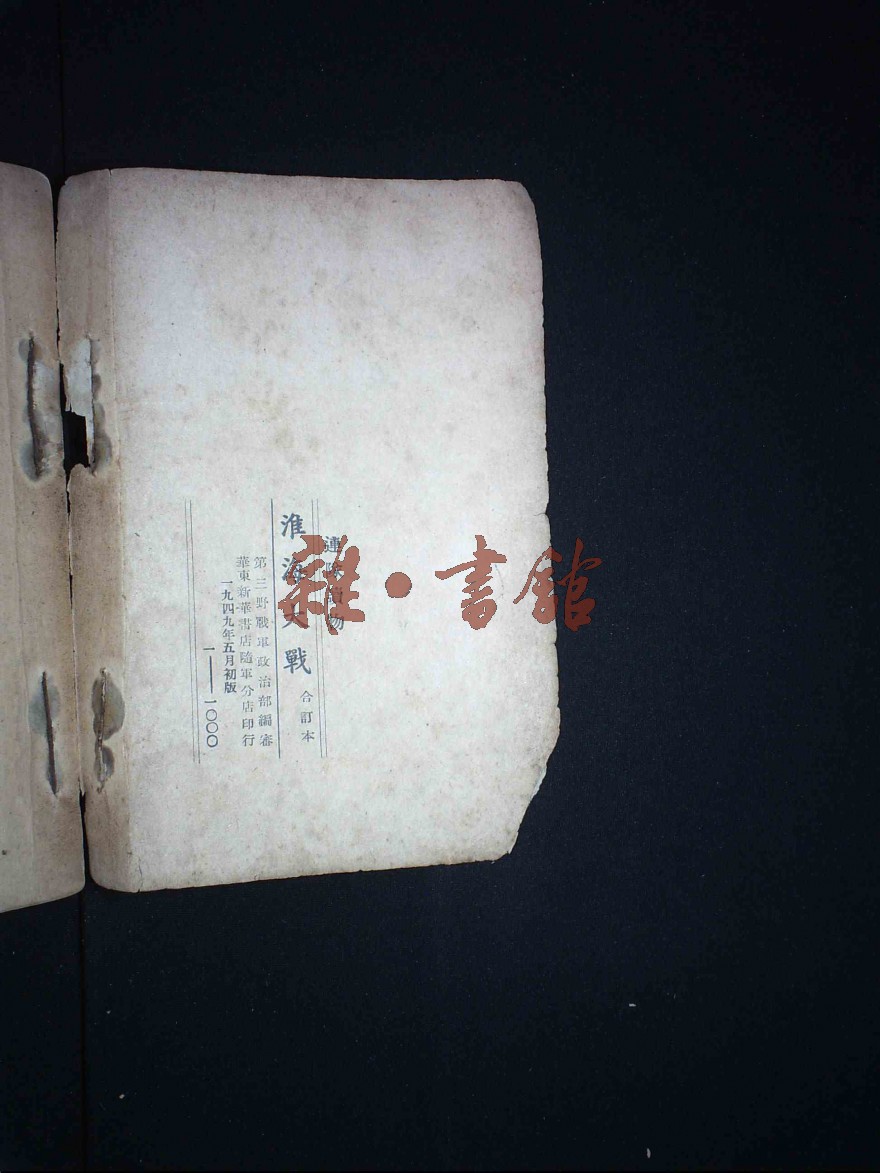 連隊讀物
淮海大戰
合訂本
第三野戰軍政治部編審
華東新華書店隨軍分店印行
一九四九年五月初版
一——一〇〇〇
雜·書館